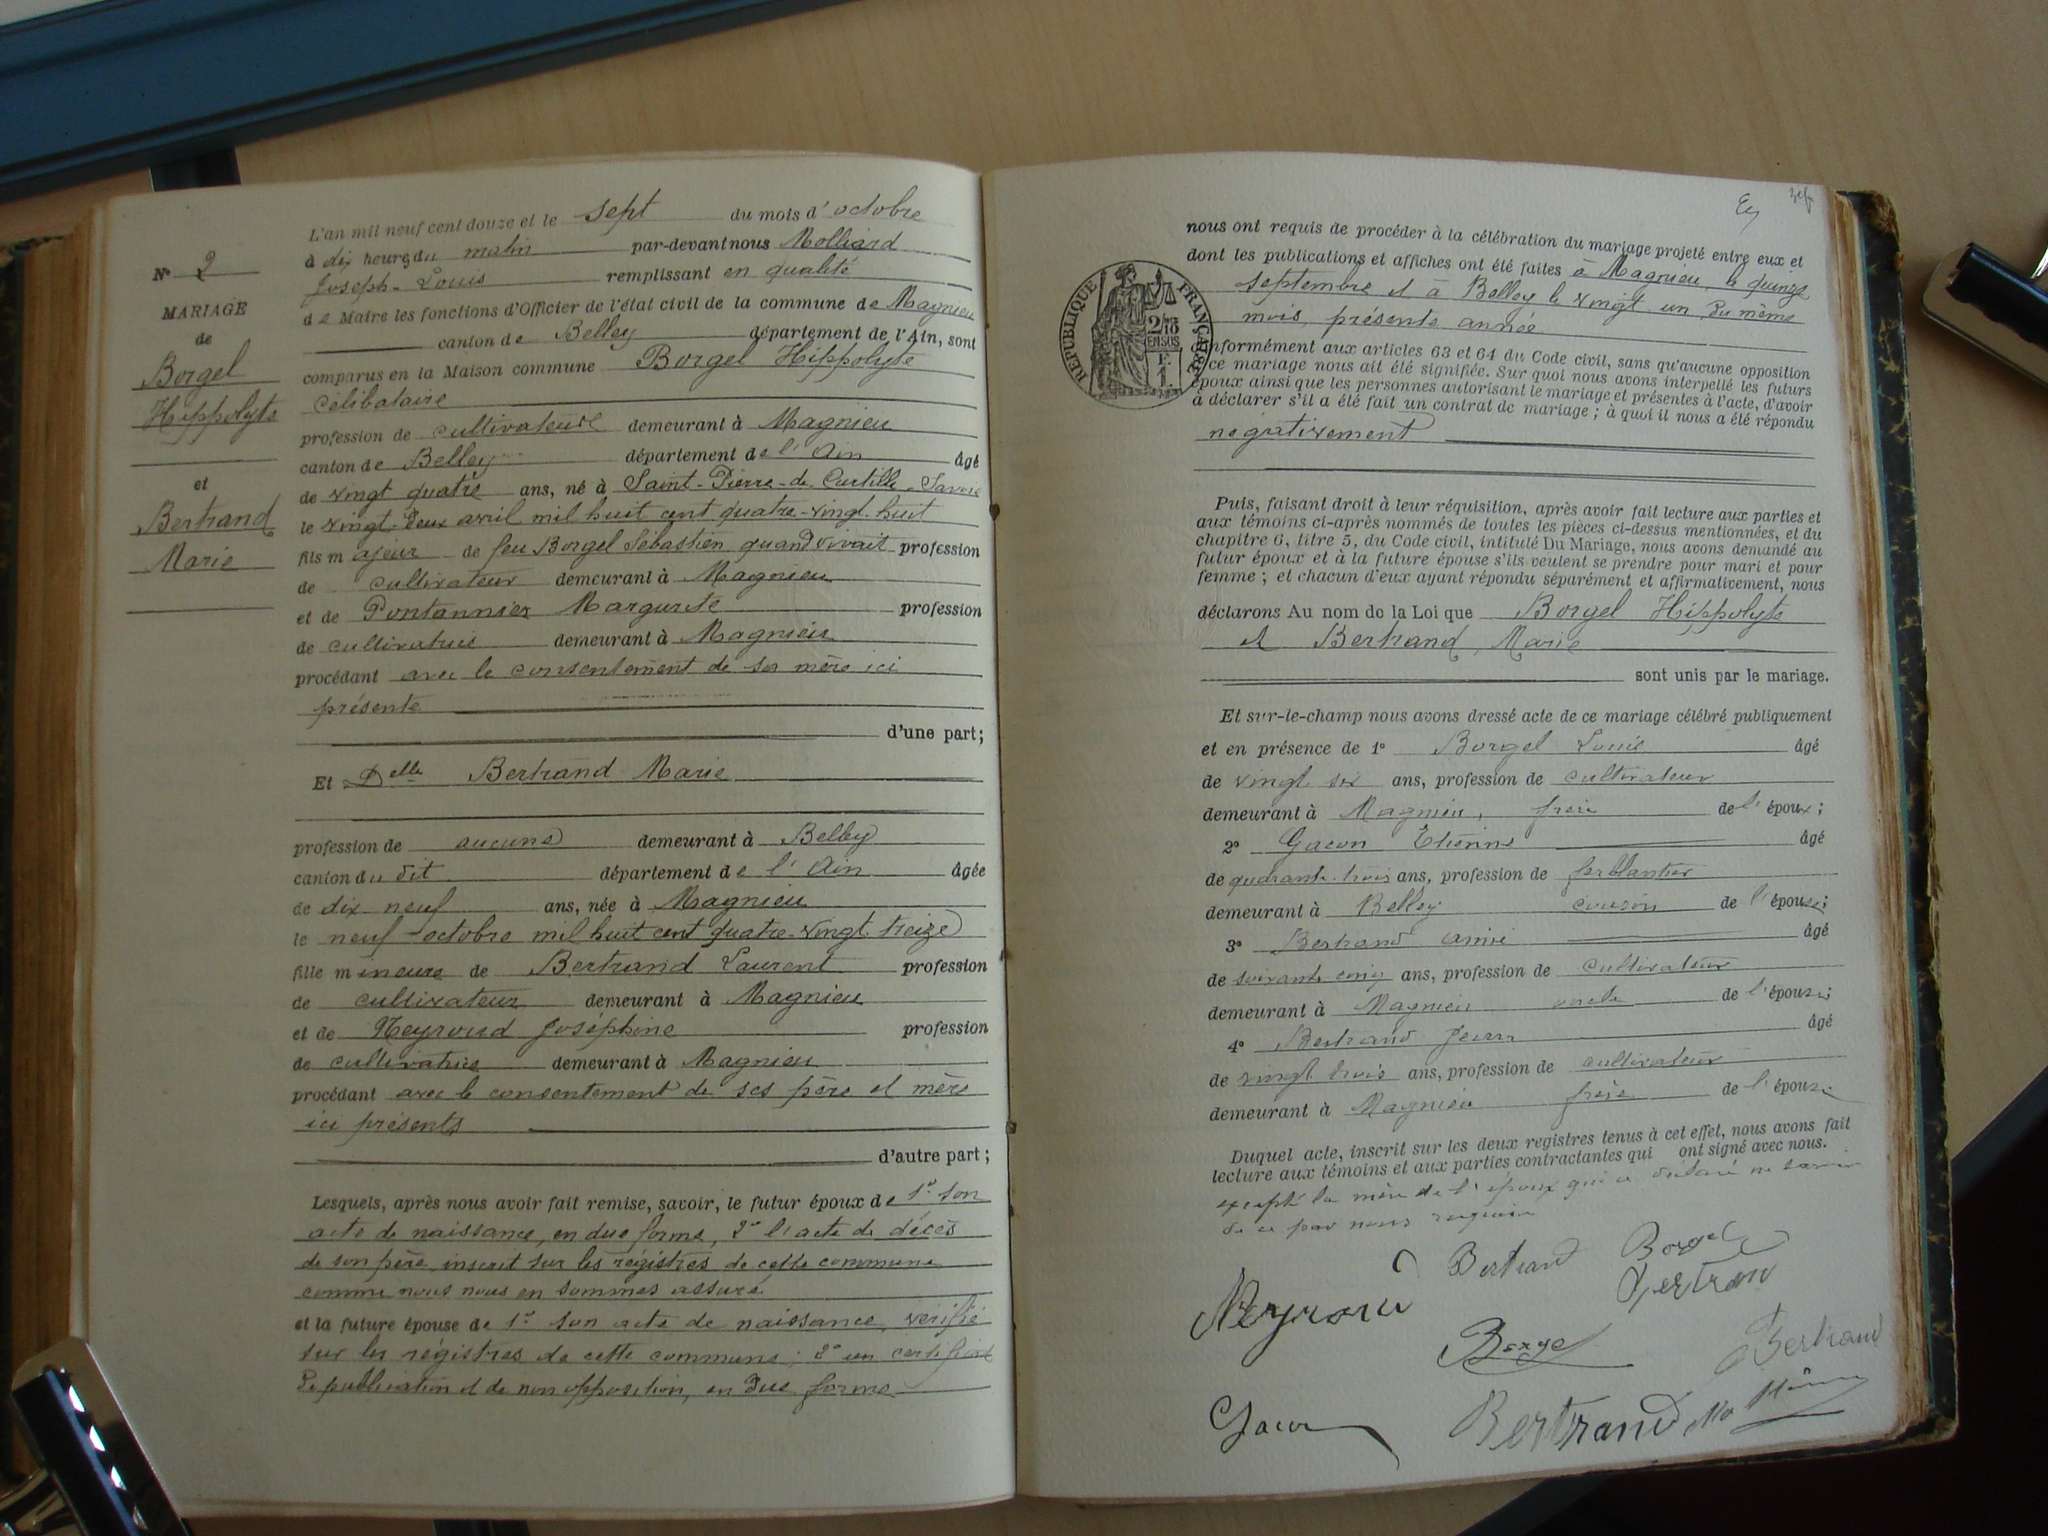 N° 2
MARIAGE
de
Borgel
Hippolyte
et
Bertrand
Marie
L'an mil neuf cent douze et le sept du mois d'octobre
à dix heures du matin par-devant nous Molliard
Joseph-Louis remplissant en qualité
de Maire les fonctions d'Officier de l'état civil de la commune de Magnieu
canton de Belley département de l'Ain, sont
comparus en la Maison commune Borgel Hippolyte
célibataire
profession de cultivateur demeurant à Magnieu
canton de Belley département de l'Ain âgé
de vingt quatre ans, né à Saint-Pierre-de-Curtille-Savoie
le vingt-deux avril mil huit cent quatre-vingt-huit
fils majeur de feu Borgel Sébastien quand vivait profession
de cultivateur demeurant à Magnieu
et de Pontannier Margurite profession
de cultivatrice demeurant à Magnieu
procédant avec le consentement de sa mère ici
présente
d'une part;
Et Delle Bertrand Marie
profession de aucune demeurant à Belley
canton du dit département de l'Ain âgée
de dix neuf ans, née à Magnieu
le neuf octobre mil huit cent quatre-vingt treize
fille mineure de Bertrand Laurent profession
de cultivateur demeurant à Magnieu
et de Neyroud Joséphine profession
de cultivatrice demeurant à Magnieu
procédant avec le consentement de ses père et mère
ici présents
d'autre part;
Lesquels, après nous avoir fait remise, savoir, le futur époux de 1° son
acte de naissance, en due forme, 2° l'acte de décès
de son père inscrit sur les régistres de cette commune
comme nous nous en sommes assuré
et la future épouse de 1° son acte de naissance vérifié
sur les régistres de cette commune; 2° un certificat
de publication et de non opposition, en due forme
nous ont requis de procéder à la célébration du mariage projeté entre eux et
dont les publications et affiches ont été faites à Magnieu, le quinze
septembre et à Belley le vingt un du même
mois, présente année
RÉPUBLIQUE FRANÇAISE
2/10
EN SUS
F.
1.
conformément aux articles 63 et 64 du Code civil, sans qu'aucune opposition
ce mariage nous ait été signifiée. Sur quoi nous avons interpellé les futurs
époux ainsi que les personnes autorisant le mariage et présentes à l'acte, d'avoir
à déclarer s'il a été fait un contrat de mariage; à quoi il nous a été répondu
négativement
Puis, faisant droit à leur réquisition, après avoir fait lecture aux parties et
aux témoins ci-après nommés de toutes les pièces ci-dessus mentionnées, et du
chapitre 6, titre 5, du Code civil, intitulé Du Mariage, nous avons demandé au
futur époux et à la future épouse s'ils veulent se prendre pour mari et pour
femme; et chacun d'eux ayant répondu séparément et affirmativement, nous
déclarons Au nom de la Loi que Borgel Hippolyte
et Bertrand Marie
sont unis par le mariage.
Et sur-le-champ nous avons dressé acte de ce mariage célébré publiquement
et en présence de 1° Borgel Louis âgé
de vingt six ans, profession de cultivateur
demeurant à Magnieu, frère de l'époux;
2° Gacon Etienne âgé
de quarante-trois ans, profession de ferblantier
demeurant à Belley cousin de l'épouse;
3° Bertrand Aimé âgé
de soixante cinq ans, profession de cultivateur
demeurant à Magnieu oncle de l'épouse;
4° Bertrand Jean âgé
de vingt trois ans, profession de cultivateur
demeurant à Magnieu frère de l'épouse
Duquel acte, inscrit sur les deux registres tenus à cet effet, nous avons fait
lecture aux témoins et aux parties contractantes qui ont signé avec nous.
excepté la mère de l'époux qui a déclaré ne savoir
de ce par nous requise
Bertrand Borgel
Neyroud Bertrand
Borgel Bertrand
Gacon Bertrand